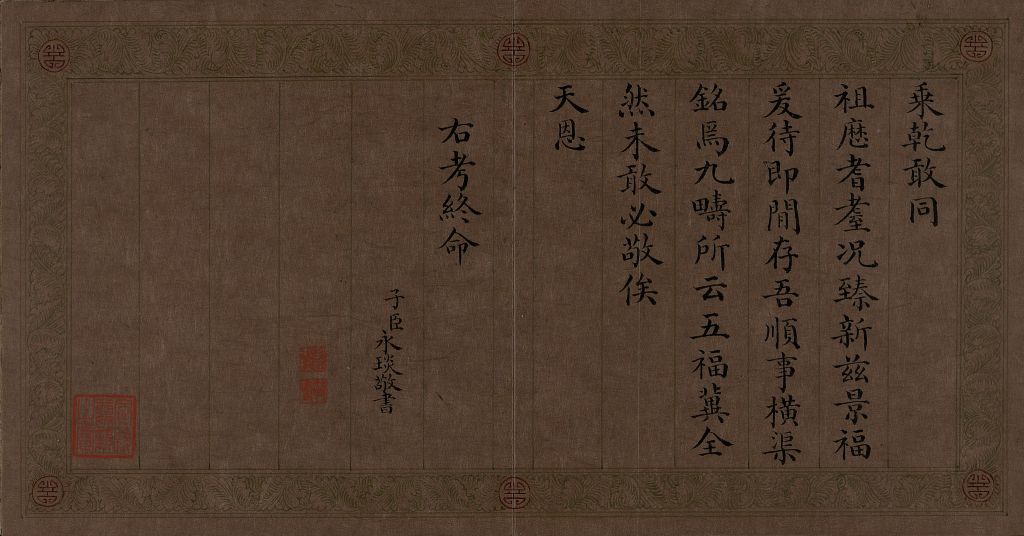 乘乾敢同
祖歷耆耋况臻新兹景福
爰待即閒存吾順事橫渠
銘爲九疇所云五福冀全
然未敢必敬俟
天恩
右考終命
子臣永琰敬書